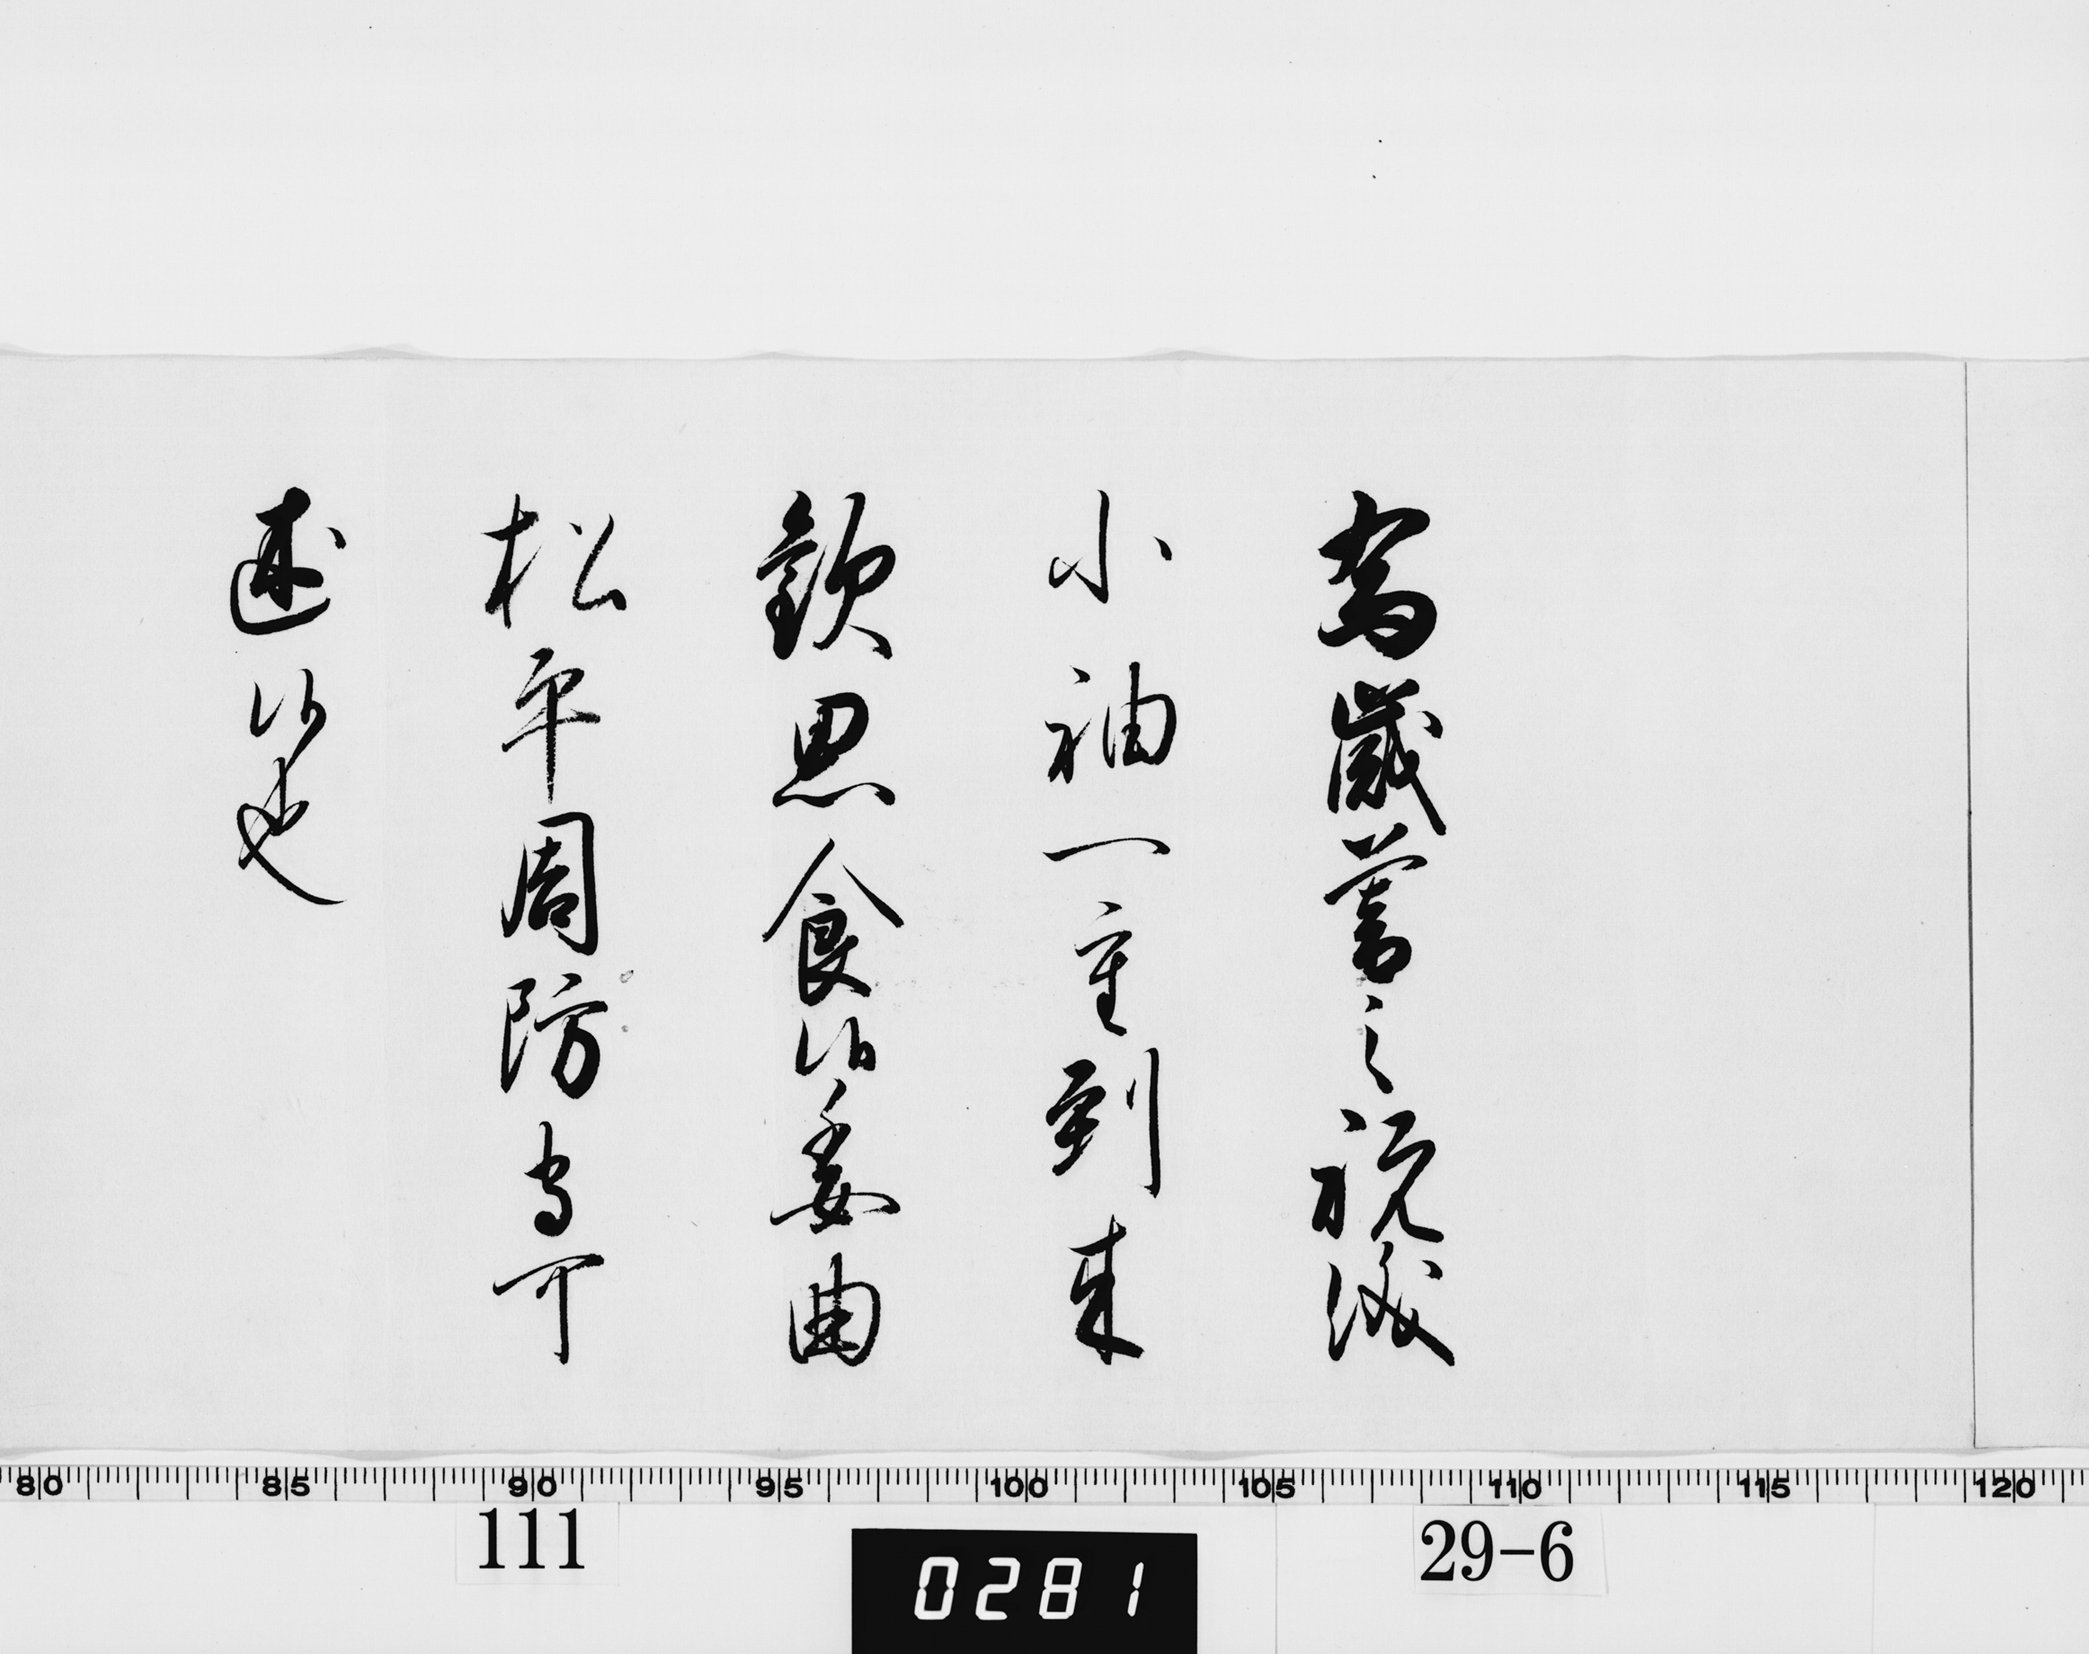 為歳暮之祝儀
小袖一重到来
歓思食候委曲
松平周防守可
述候也
80 85 90 95 100 105 110 115 120
111
0281
29-6